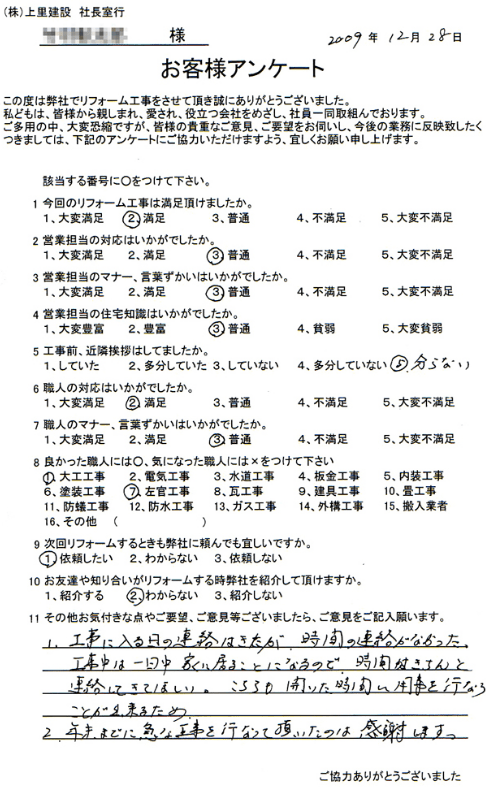 (株)上里建設 社長室行
様
2009年 12月 28日
お客様アンケート
この度は弊社でリフォーム工事をさせて頂き誠にありがとうございました。
私どもは、皆様から親しまれ、愛され、役立つ会社をめざし、社員一同取組んでおります。
ご多用の中、大変恐縮ですが、皆様の貴重なご意見、ご要望をお伺いし、今後の業務に反映致したく
つきましては、下記のアンケートにご協力いただけますよう、宜しくお願い申し上げます。
該当する番号に○をつけて下さい。
1 今回のリフォーム工事は満足頂けましたか。
1、大変満足 2、満足 3、普通 4、不満足 5、大変不満足
2 営業担当の対応はいかがでしたか。
1、大変満足 2、満足 3、普通 4、不満足 5、大変不満足
3 営業担当のマナー、言葉ずかいはいかがでしたか。
1、大変満足 2、満足 3、普通 4、不満足 5、大変不満足
4 営業担当の住宅知識はいかがでしたか。
1、大変豊富 2、豊富 3、普通 4、貧弱 5、大変貧弱
5 工事前、近隣挨拶はしてましたか。
1、していた 2、多分していた 3、していない 4、多分していない 5、分らない
6 職人の対応はいかがでしたか。
1、大変満足 2、満足 3、普通 4、不満足 5、大変不満足
7 職人のマナー、言葉ずかいはいかがでしたか。
1、大変満足 2、満足 3、普通 4、不満足 5、大変不満足
8 良かった職人には○、気になった職人には×をつけて下さい
1、大工工事 2、電気工事 3、水道工事 4、板金工事 5、内装工事
6、塗装工事 7、左官工事 8、瓦工事 9、建具工事 10、畳工事
11、防蟻工事 12、防水工事 13、ガス工事 14、外構工事 15、搬入業者
16、その他 ( )
9 次回リフォームするときも弊社に頼んでも宜しいですか。
1、依頼したい 2、わからない 3、依頼しない
10 お友達や知り合いがリフォームする時弊社を紹介して頂けますか。
1、紹介する 2、わからない 3、紹介しない
11 その他お気付きな点やご要望、ご意見等ございましたら、ご意見をご記入願います。
1. 工事に入る日の連絡はきたが、時間の連絡がなかった。
工事中は一日中家に居ることになるので、時間はきちんと
連絡してきてほしい。こちらも開いた時間に用事を行なう
ことが出来るため
2. 年末までに急な工事を行なって頂いたのは感謝します。
ご協力ありがとうございました